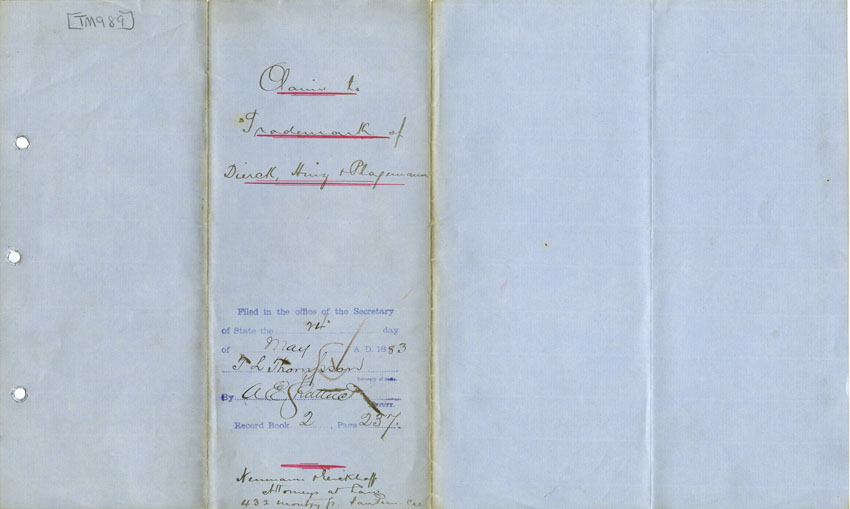 [TM989]
Claim to
Trademark of
Dierck, Hinz & Plagemann
Filed in the office of the Secretary
of State the 24 day
of May A. D. 1883
T L Thompson
Secretary of State.
By A E Shattuck
DEPUTY.
Record Book 2, Page 257.
Neumann & Eickhoff
Attorneys at Law
432 Montgy St.